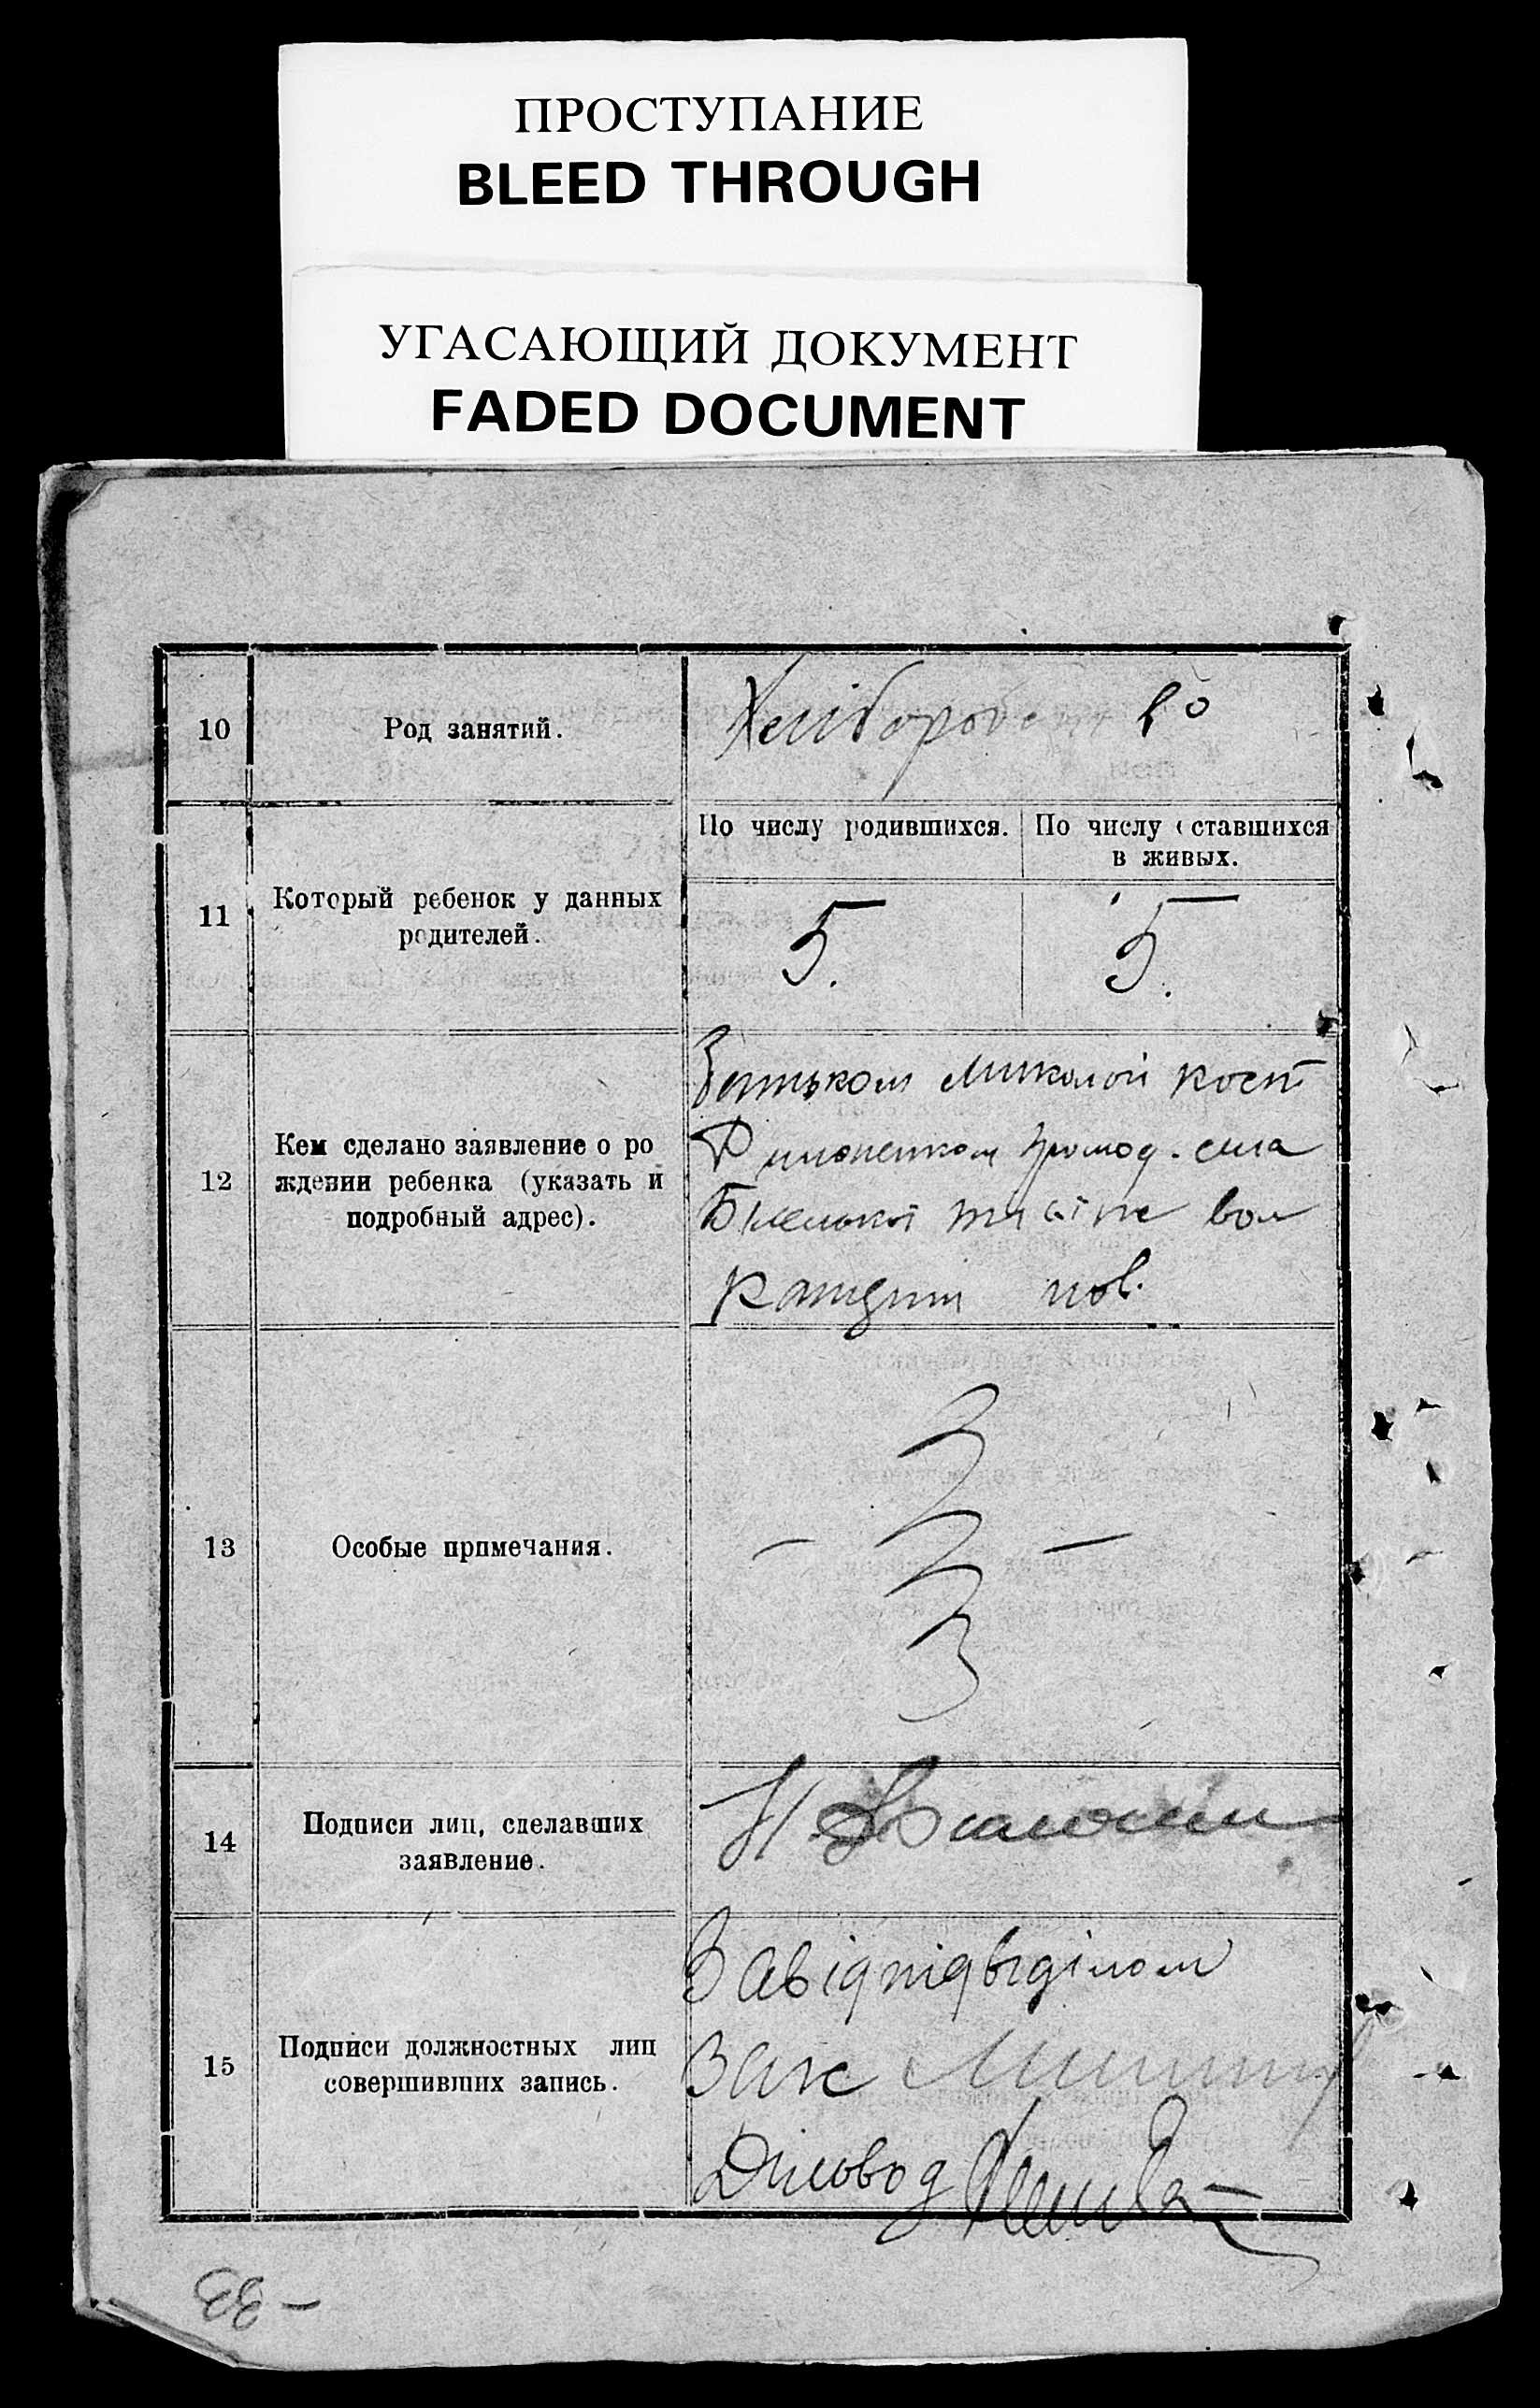 ПРОСТУПАНИЕ
BLEED THROUGH
УГАСАЮЩИЙ ДОКУМЕНТ
FADED DOCUMENT
10
Род занятий.
Хліборобство
11
Который ребенок у данных
родителей.
По числу родившихся.
По числу оставшихся
в живых.
5.
5.
12
Кем сделано заявление о ро
ждении ребенка (указать и
подробный адрес).
Батьком Миколой Кост
громод. села
вол
пов.
13
Особые примечания.
14
Подписи лиц, сделавших
заявление.
15
Подписи должностных лиц
совершивших запись.
Завідпідвідділом
Зак
Діловод